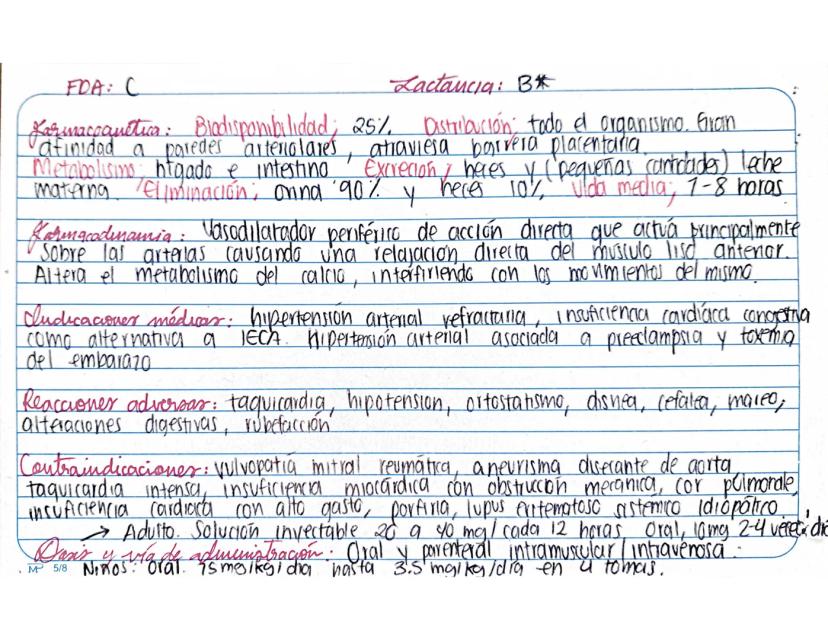 FDA: C Lactancia: B*
Farmacocinética: Biodisponibilidad; 25%. Distribución; todo el organismo. Gran
afinidad a paredes arteriolares, atraviesa barrera placentaria.
Metabolismo; hígado e intestino Excreción; heces y (pequeñas cantidades) leche
materna. Eliminación; orina 90% y heces 10%, Vida media; 7-8 horas
Farmacodinamia: Vasodilatador periférico de acción directa que actúa principalmente
sobre las arterias causando una relajación directa del musculo liso anterior.
Altera el metabolismo del calcio, interfiriendo con los movimientos del mismo.
Indicaciones médicas: hipertensión arterial refractaria, insuficiencia cardíaca congestiva
como alternativa a IECA. Hipertensión arterial asociada a preeclampsia y toxemia
del embarazo
Reacciones adversas: taquicardia, hipotension, ortostatismo, disnea, cefalea, mareo,
alteraciones digestivas, rubefacción
Contraindicaciones: vulvopatia mitral reumática, aneurisma disecante de aorta,
taquicardia intensa, insuficiencia miocárdica con obstrucción mecánica, cor pulmonale,
insuficiencia cardiaca con alto gasto, porfiria, lupus eritematoso sistémico idiópático
→ Adulto. Solución inyectable 20 a 40 mg/cada 12 horas Oral, 10mg 2-4 veces/día
Dosis y vía de administración: Oral y parenteral intramuscular/intravenosa.
MP 5/8 Niños: Oral. 75mg/kg/dia hasta 3.5 mg/kg/día en 4 tomas.